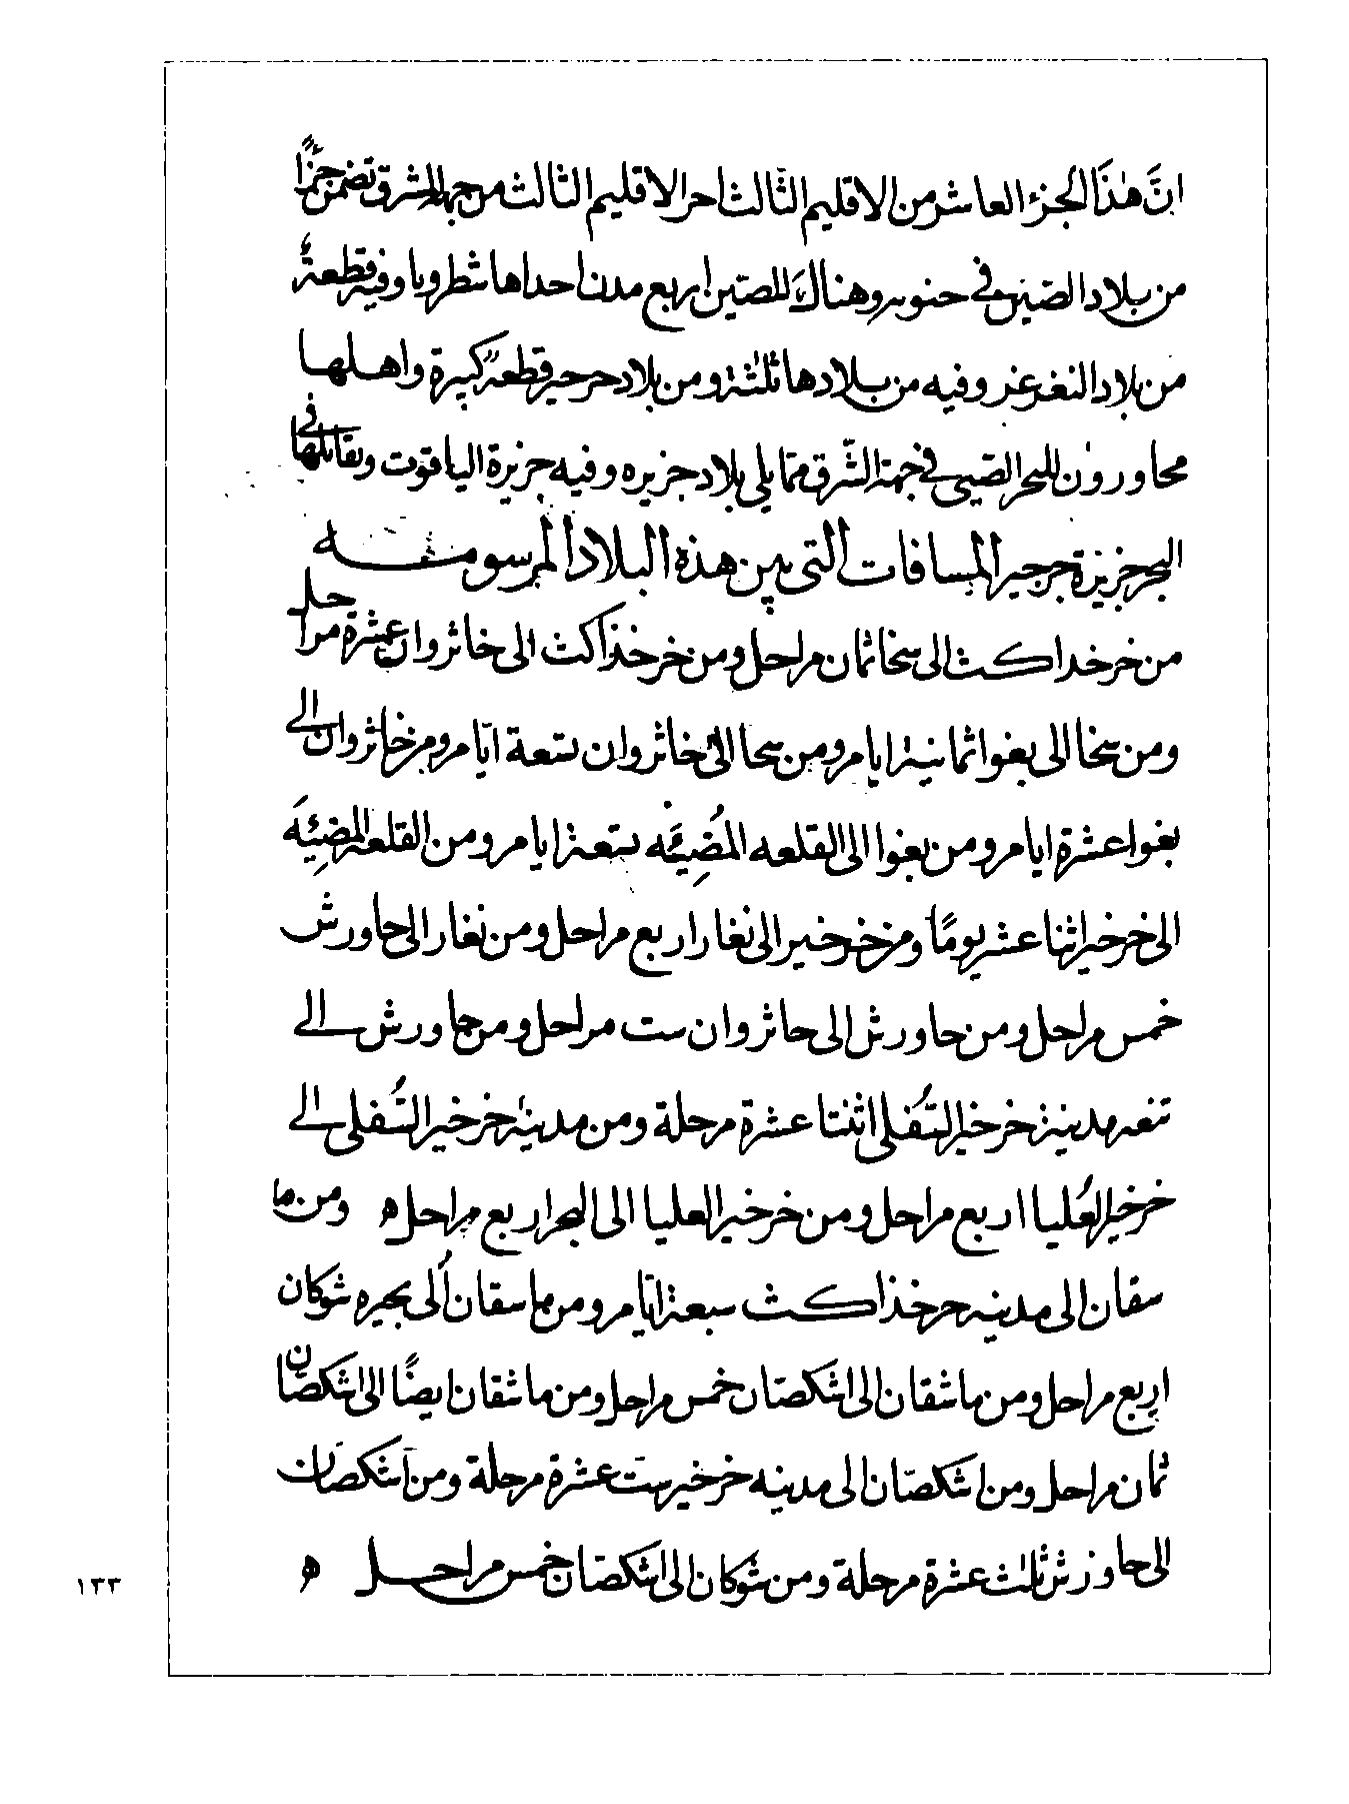 انَّ هٰذَا الجزء العاشر من الاقليم الثَّالث اخر الاقليم الثالث من جهة المشرق تضمن جزءًا
من بلاد الصّين في جنوبه وهناكَ للصّين اربع مدن احداها شطرويا وفيه قطعةٌ
من بلاد التغزغز وفيه من بلادها ثلثة ومن بلاد خرخير قطعةٌ كبيرة واهلها
مجاورون للبحر الصّينى في جهة الشّرق ممّا يلى بلاد جزيره وفيه جزيرة الياقوت وتقابلها في
البحر جزيرة خرخير المسافات التى بين هذه البلاد المرسومه
من خرخداكث الى سخا ثمان مراحل ومن خرخذاكث الى خاثروان عشرة مراحل
ومن سخا الى بغوا ثمانية ايام ومن سخا الى خاثروان ستعة ايّام ومن خاثروان الى
بغوا عشرة ايام ومن بغوا الى القلعه المُضِيَئه ستعة ايام ومن القلعة المضِيئه
الى خرخير اثنا عشر يومًا ومن خرخير الى نغار اربع مراحل ومن نغار الى حاورش
خمس مراحل ومن حاورش الى خاثروان ست مراحل ومن حاورش الى
تنعه مدينة خرخير السُّفلى اثنتا عشرة مرحلة ومن مدينة خرخير السُّفلى الى
خرخير العُليا اربع مراحل ومن خرخير العليا الى البحر اربع مراحل ه ومن ما
سقان الى مدينه خرخذاكث سبعة ايّام ومن ماسقان الى بحيره شوكان
اربع مراحل ومن ماشقان الى اشكصان خمس مراحل ومن ماشقان ايضًا الى اشكصان
ثمان مراحل ومن اشكصّان الى مدينه خرخير ست عشرة مرحلة ومن اشكصان
الى حاورش ثلث عشرة مرحلة ومن شوكان الى اشكصان خمس مراحل ه
١٣٣